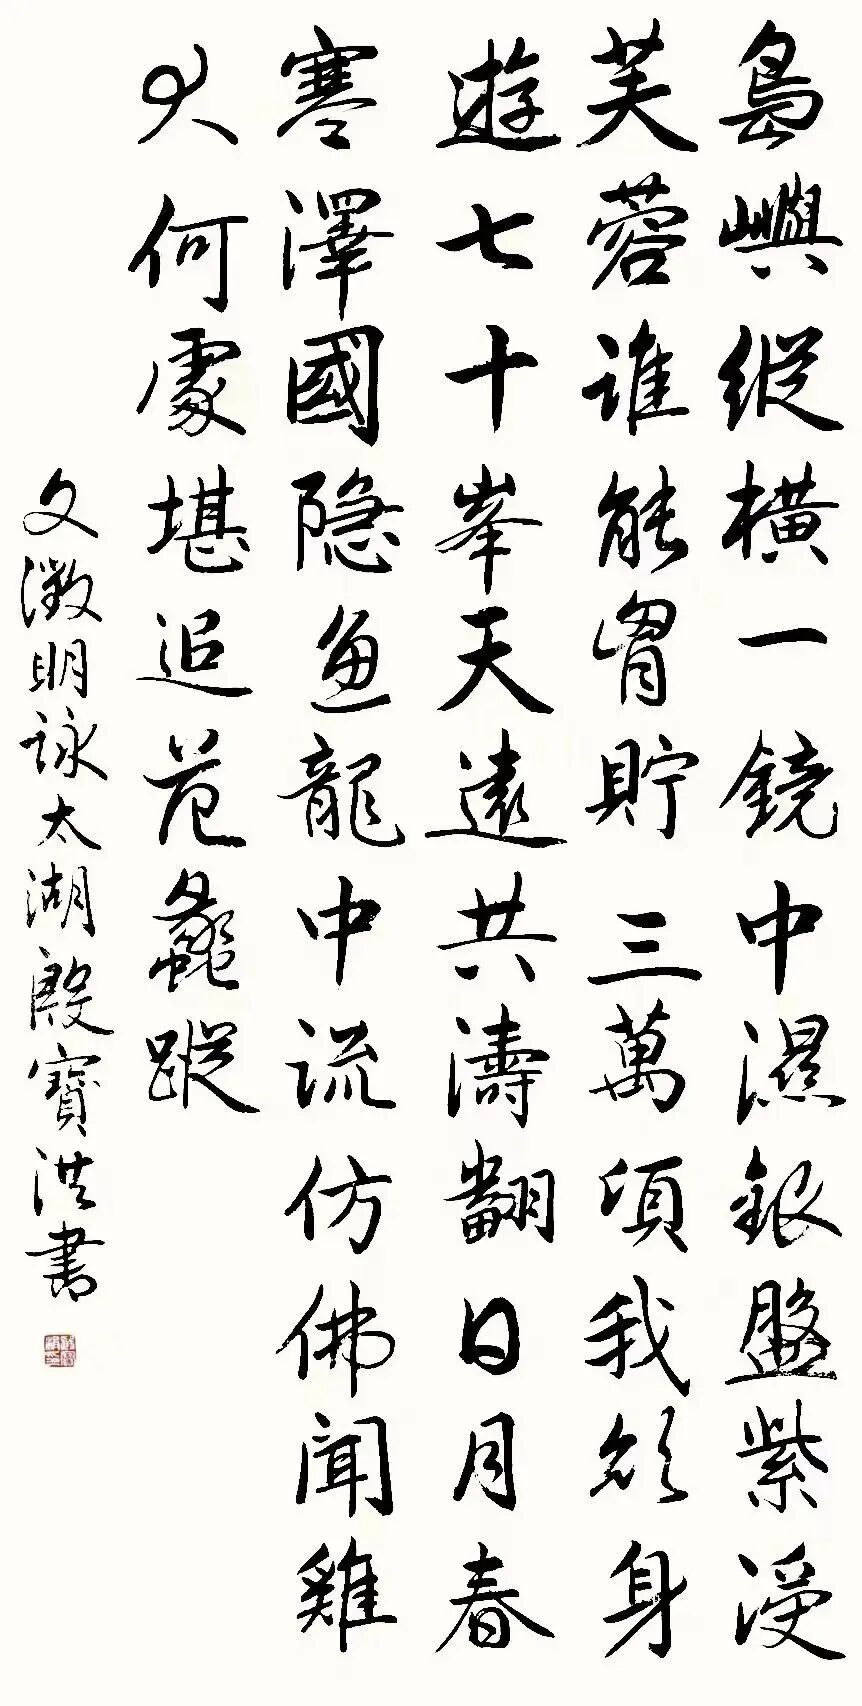 島嶼縱橫一鏡中濕銀盤紫浸
芙蓉誰能胷貯三萬頃我欲身
遊七十峯天遠共濤翻日月春
寒澤國隱魚龍中流仿佛聞雞
犬何處堪追范蠡蹤
文徵明詠太湖殷寶洪書